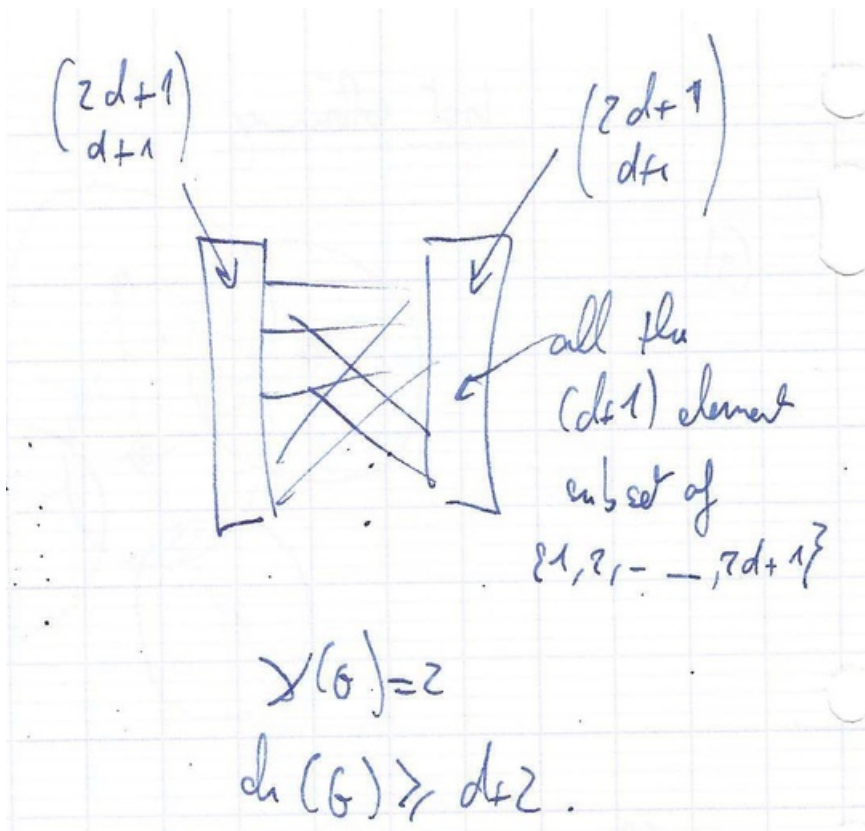 (2d+1
d+1)
(2d+1
d+1)
all the
(d+1) element
subset of
{1,2,- —,2d+1}
χ(G)=2
ch(G)≥ d+2.